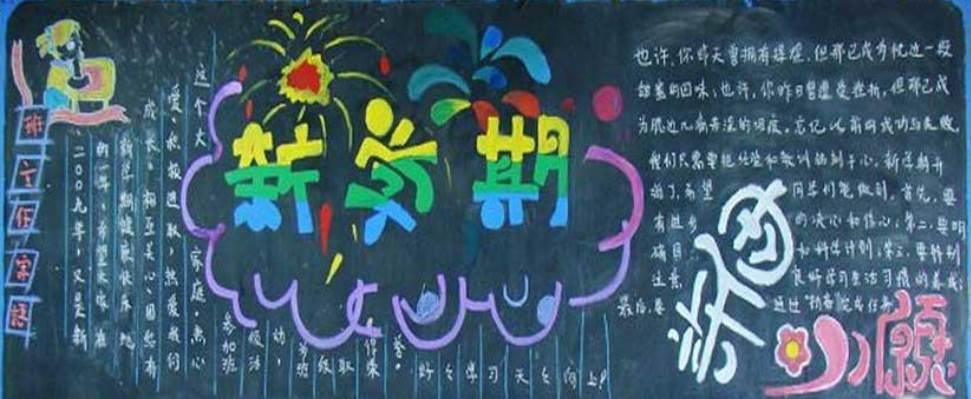 班主任寄语
二〇〇九年，又是新
的一年，希望大家在
新学期健康快乐地
成长，相互关心，团结有
爱，积极进取，热爱我们
这个大家庭，热心
参加班
级活
动，
为班级取得荣
誉。
好好学习天天向上
新学期
也许，你昨天曾拥有辉煌，但那已成为枕边一段
甜蜜的回味；也许，你昨日曾遭受挫折，但那已成
为腮边几滴苦涩的泪痕。忘记以前的成功与失败，
我们只需要把经验和教训铭刻于心。新学期开
始了，希望同学们能做到，首先，要
有进步的决心和信心，第二，要明
确目和计划，第三，要特别
注意良好学习生活习惯的养成；
最后，要通过
新
心愿